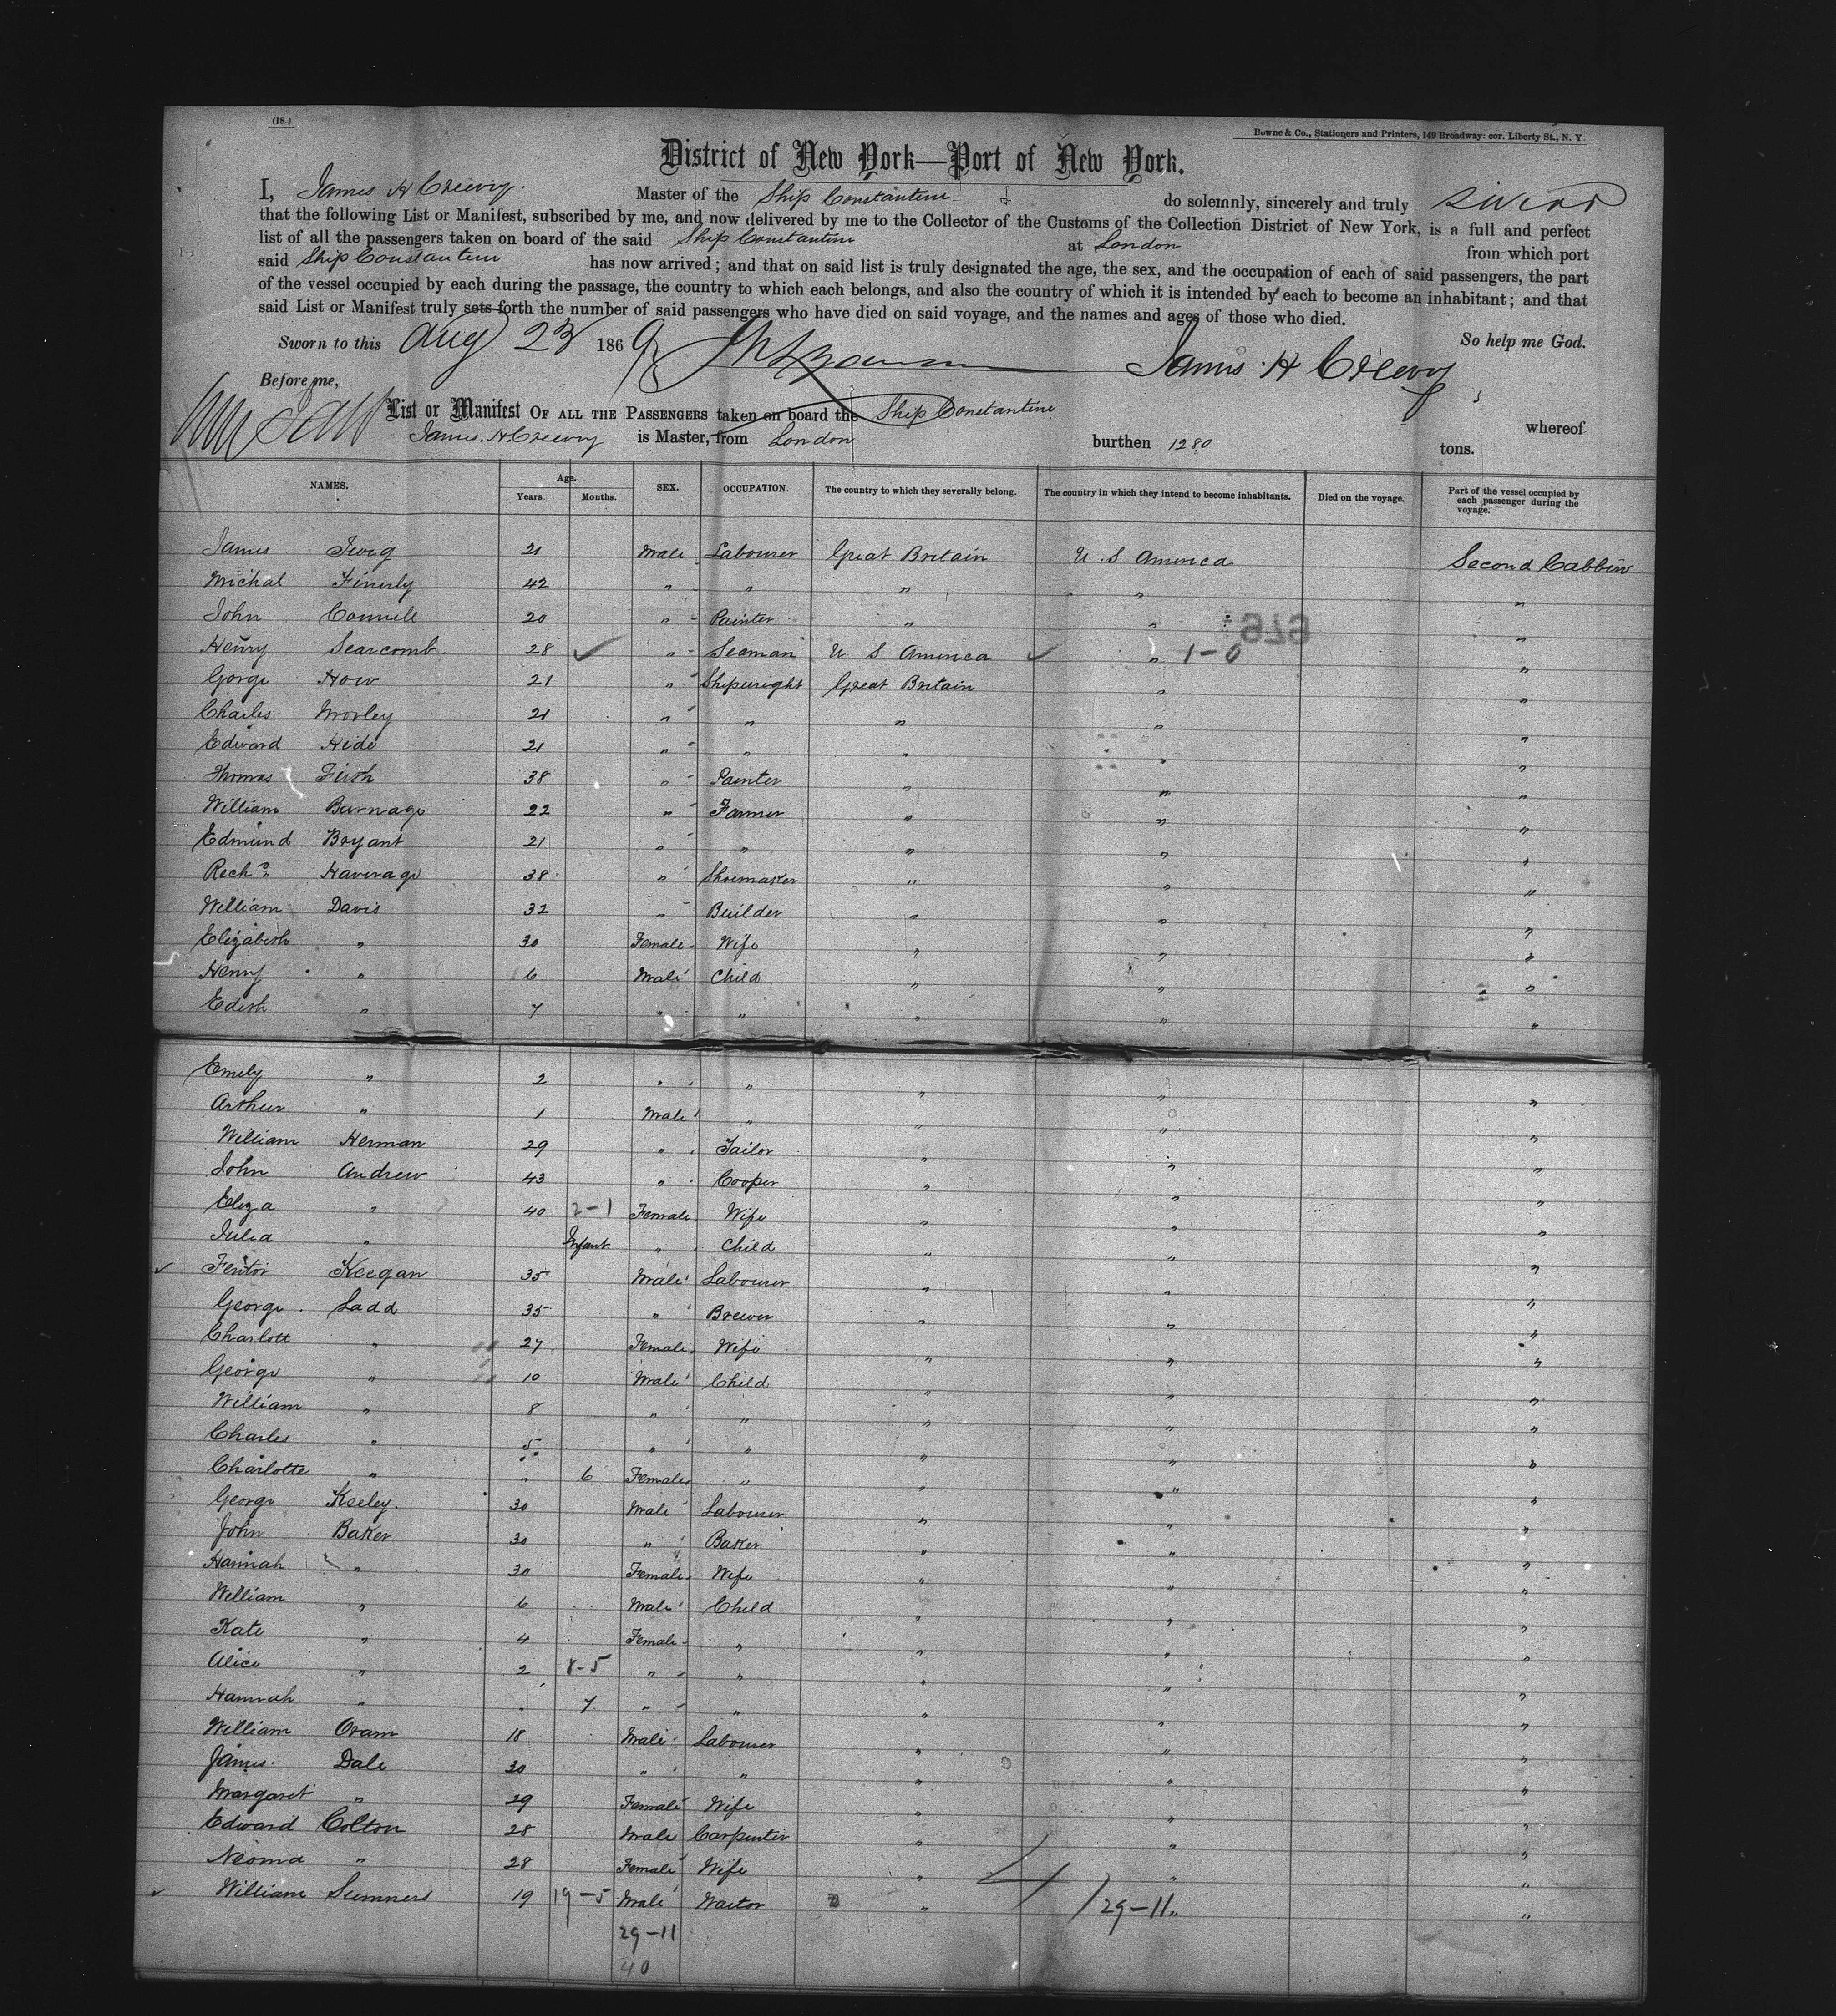 (18.)
Bowne & Co., Stationers and Printers, 149 Broadway: cor. Liberty St., N. Y.
District of New York—Port of New York.
I, James H Creevy. Master of the Ship Constantine do solemnly, sincerely and truly swear
that the following List or Manifest, subscribed by me, and now delivered by me to the Collector of the Customs of the Collection District of New York, is a full and perfect
list of all the passengers taken on board of the said Ship Constantine at London from which port
said Ship Constantine has now arrived; and that on said list is truly designated the age, the sex, and the occupation of each of said passengers, the part
of the vessel occupied by each during the passage, the country to which each belongs, and also the country of which it is intended by each to become an inhabitant; and that
said List or Manifest truly sets forth the number of said passengers who have died on said voyage, and the names and ages of those who died.
So help me God.
Sworn to this Aug 23 1869 James H Creevy
Before me,
List or Manifest OF ALL THE PASSENGERS taken on board the Ship Constantine whereof
James. H Creevy is Master, from London burthen 1280 tons.
NAMES. Age. Years. Months. SEX. OCCUPATION. The country to which they severally belong. The country in which they intend to become inhabitants. Died on the voyage. Part of the vessel occupied by each passenger during the voyage.
James Twig 21 Male Labourer Great Britain U. S America Second Cabbin
Michal Finerly 42 " " " " "
John Connell 20 " Painter " " "
676
Henry Searcomb 28 ✓ " Seaman U S America ✓ " 1-0 "
Gorge How 21 " Shipwright Great Britain " "
Charles Morley 21 " " " " "
Edward Hide 21 " " " " "
Thomas Firth 38 " Painter " " "
William Burnage 22 " Farmer " " "
Edmund Bryant 21 " " " " "
Rechd Haverage 38 " Shoemaker " " "
William Davis 32 " Builder " " "
Elizabeth " 30 Female Wife " " "
Henry " 6 Male Child " " "
Edith " 7 " " " " "
Emely " 2 " " " " "
Arthur " 1 Male " " " "
William Herman 29 " Tailor " " "
John Andrew 43 " Cooper " " "
Eliza " 40 2-1 Female Wife " " "
Julia " Infant " Child " " "
✓ Fentor Keegan 35 Male Labourer " " "
George Ladd 35 " Brewer " " "
Charlott " 27 Female Wife " " "
George " 10 Male Child " " "
William " 8 " " " " "
Charles " 5 " " " " "
Charlotte " " 6 Female " " " "
George Kseley. 30 Male Labourer " " "
John Baker 30 " Baker " " "
Hannah " 30 Female Wife " " "
William " 6 Male Child " " "
Kate " 4 Female " " " "
Alice " 2 8-5 " " " " "
Hannah " " 7 " " " " "
William Oram 18 Male Labourer " " "
James. Dale 30 " " " " "
Margaret " 29 Female Wife " " "
Edward Colton 28 Male Carpenter " " "
Neoma " 28 Female Wife " " "
✓ William Sumners 19 19-5 Male Waitor " 29-11 " "
29-11
40